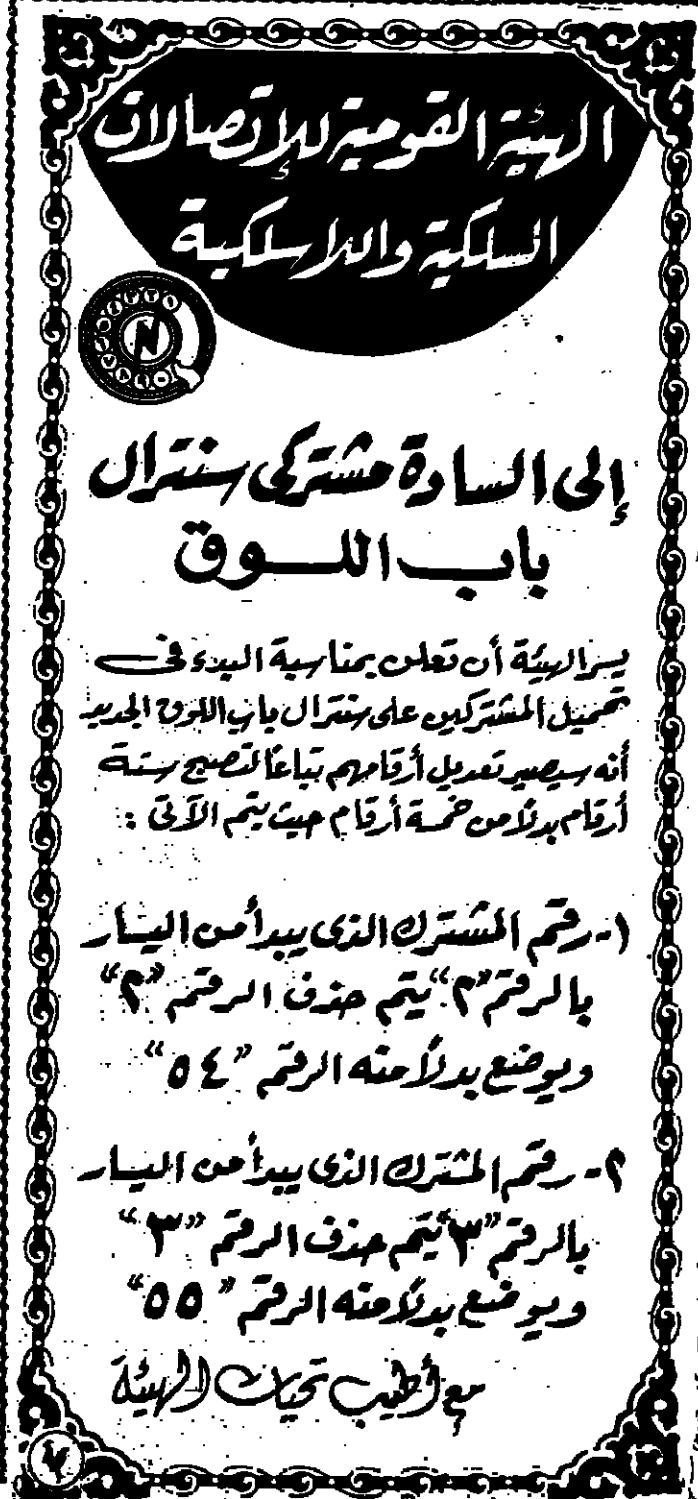 الهيئة القومية للإتصالات
السلكية واللاسلكية
إلى السادة مشتركى سنترال
باب اللــوق
يسر الهيئة أن تعلن بمناسبة البدء فى
تحميل المشتركين على سنترال باب اللوق الجديد
أنه سيصير تعديل أرقامهم تباعًا لتصبح ستة
أرقام بدلًا من خمسة أرقام حيث يتم الآتى :
١- رقم المشترك الذى يبدأ من اليسار
بالرقم "٢" يتم حذف الرقم "٢"
ويوضع بدلًا منه الرقم "٥٤"
٢- رقم المشترك الذى يبدأ من اليسار
بالرقم "٣" يتم حذف الرقم "٣"
ويوضع بدلًا منه الرقم "٥٥"
مع أطيب تحيات الهيئة